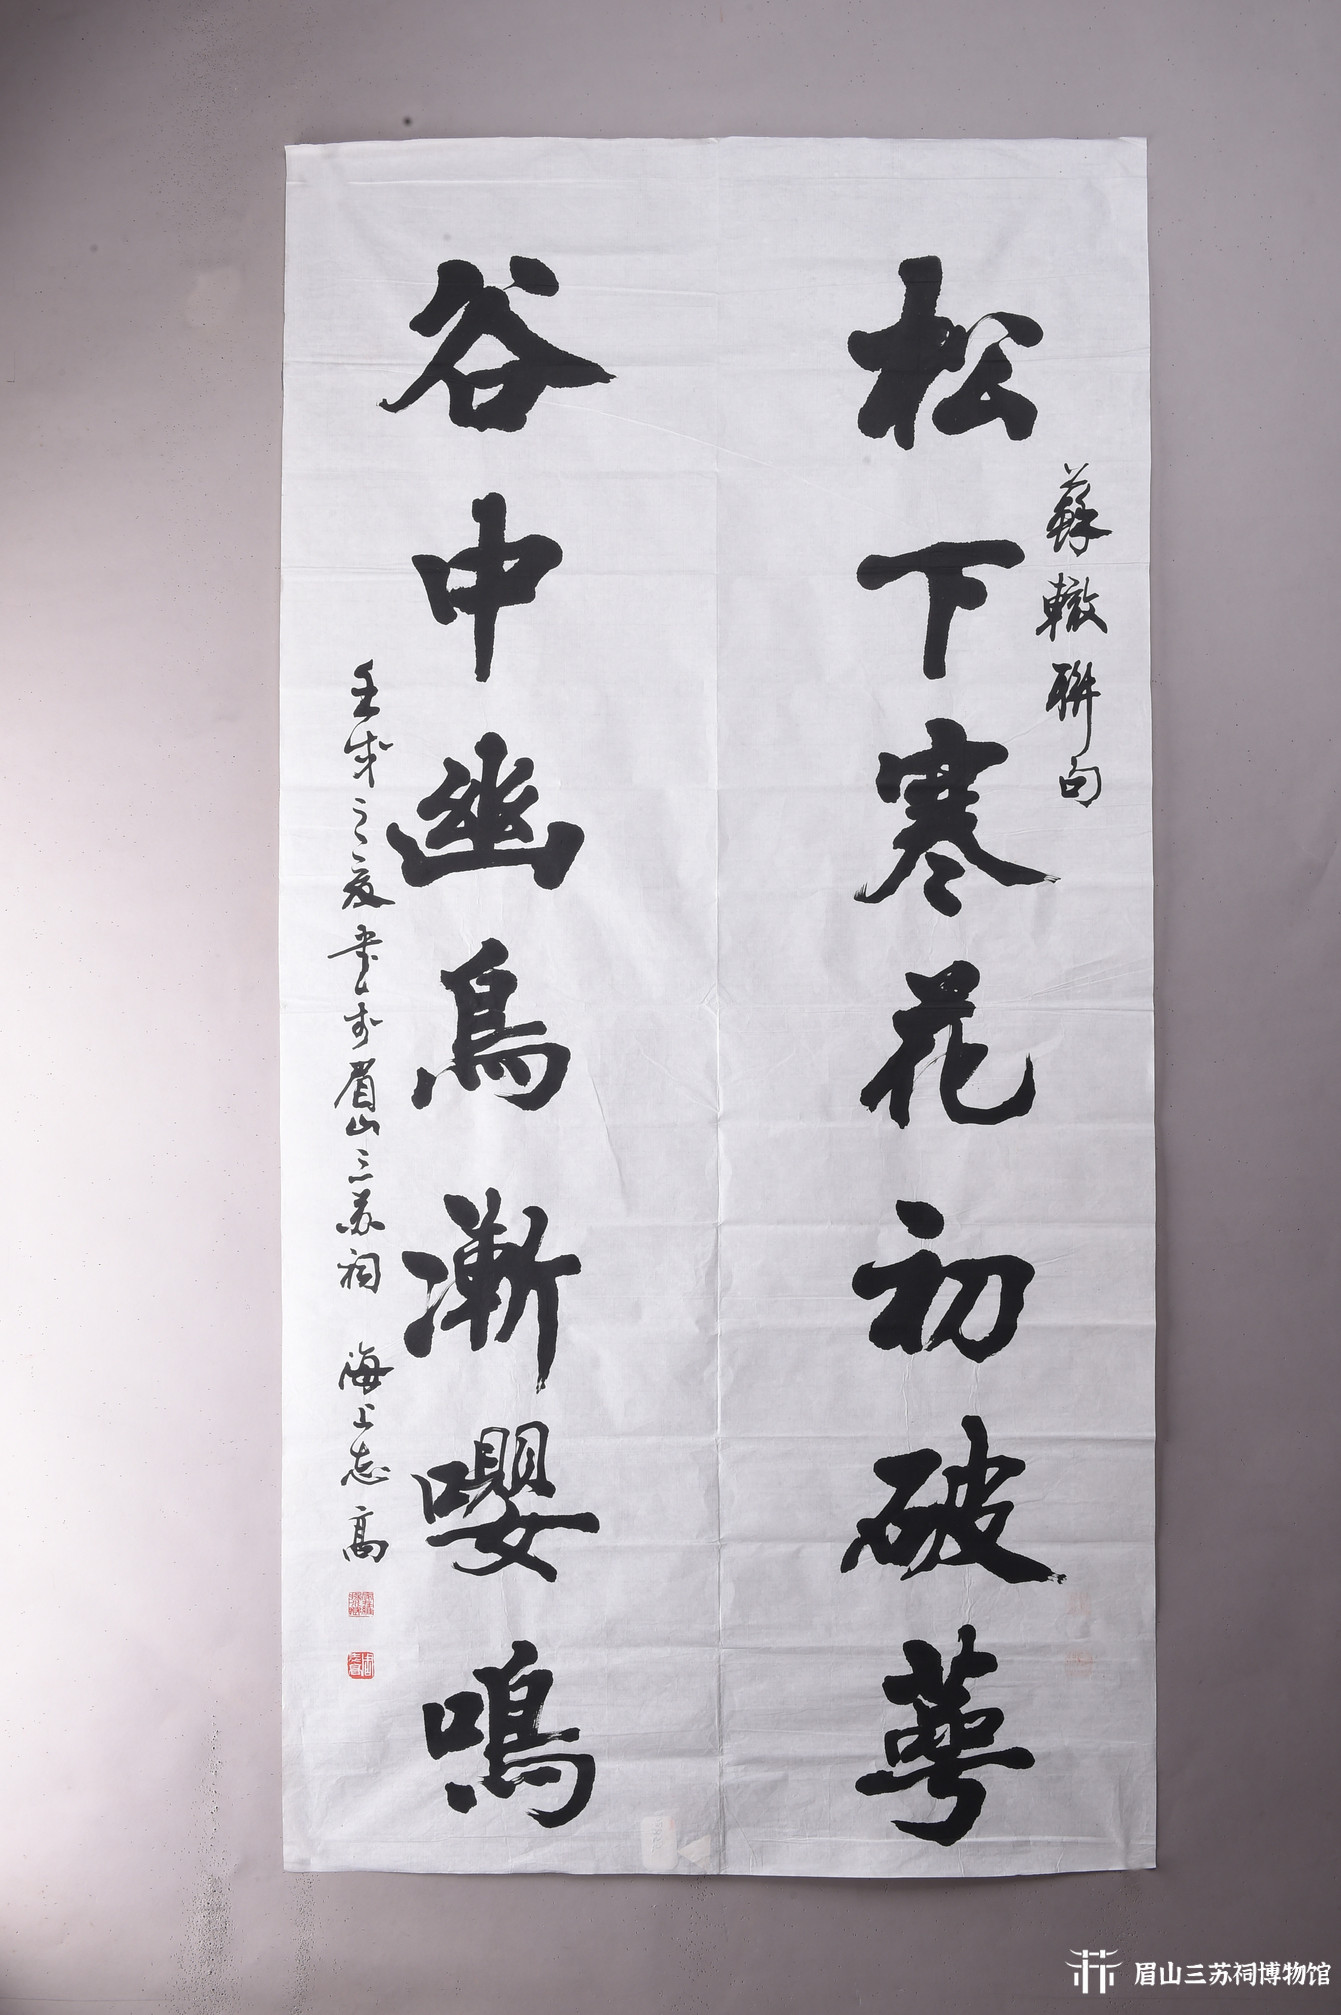 蘇轍聯句
松下寒花初破萼
谷中幽鳥漸嚶鳴
壬戌之夏書於眉山三苏祠 海上志高
眉山三苏祠博物馆